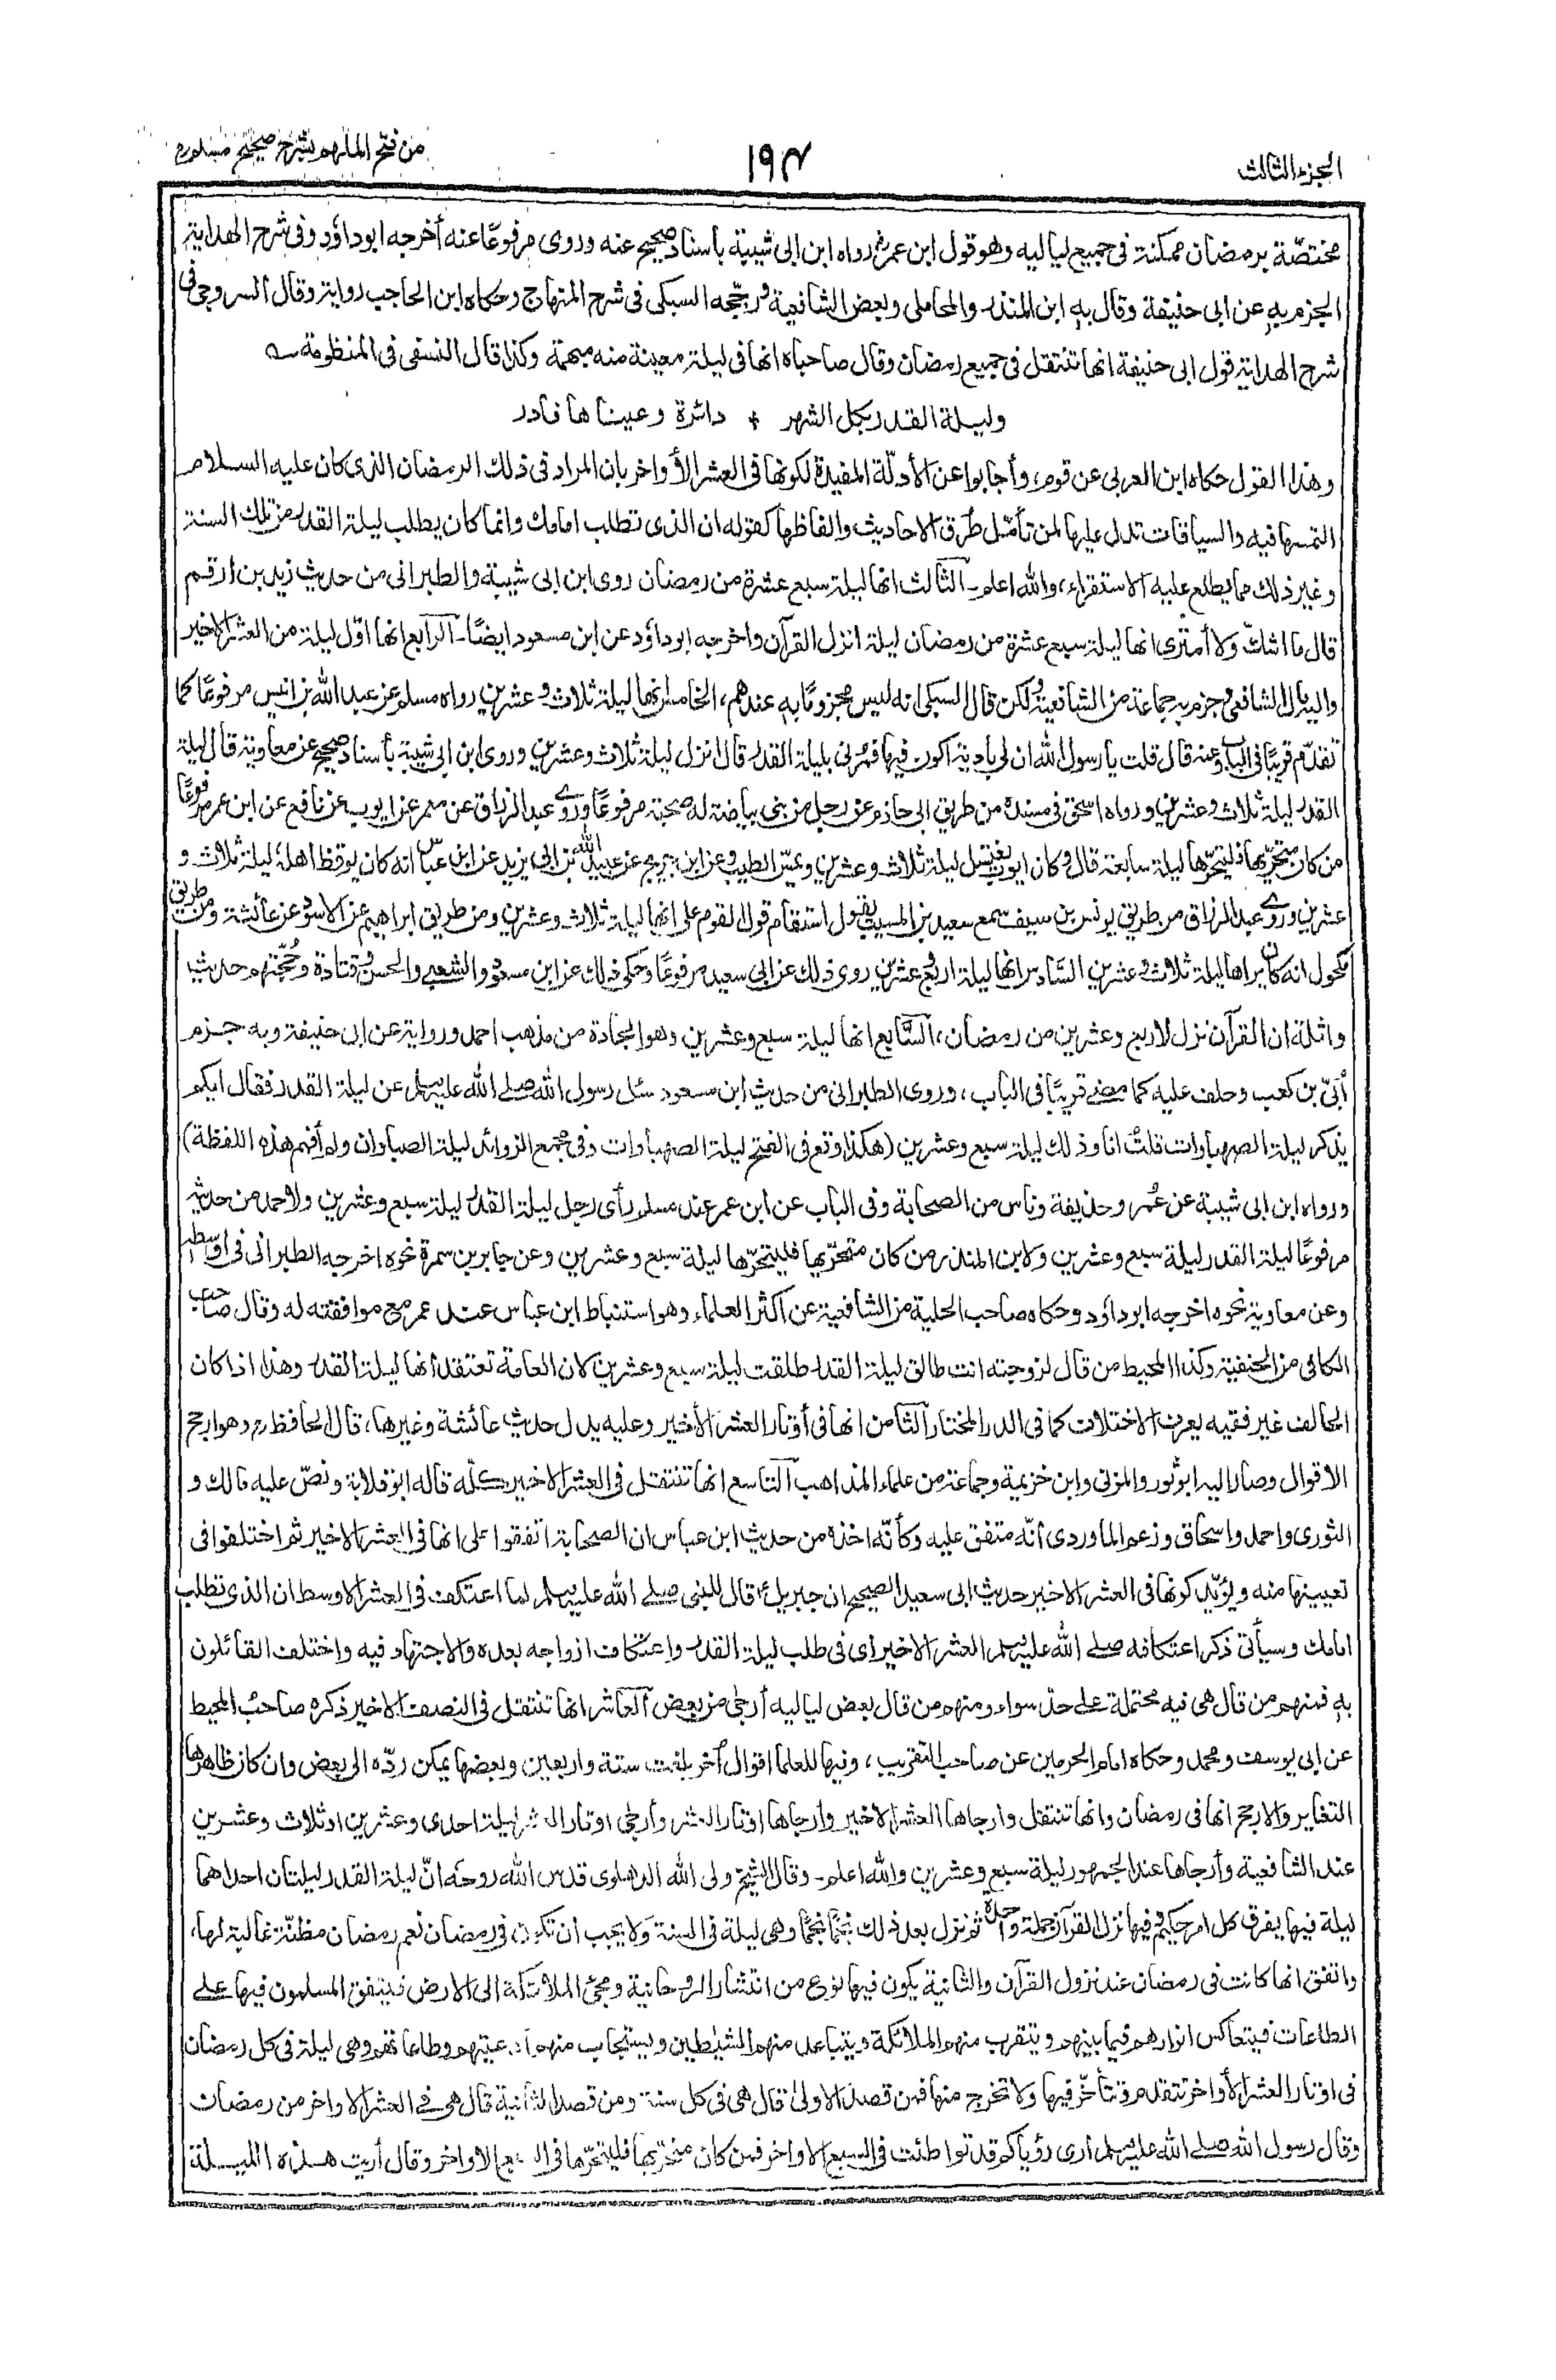 الجزء الثالث
١٩٣
من فتح الملهم بشرح صحيح مسلم
مختصّة برمضان ممكنة فى جميع لياليه وهو قول ابن عمر رواه ابن ابى شيبة باسناد صحيح عنه وروى مرفوعًا عنه أخرجه ابوداؤد وفى شرح الهداية
الجزم به عن ابى حنيفة وقال به ابن المنذر والمحاملى وبعض الشافعية ورجّحه السبكى فى شرح المنهاج وحكاه ابن الحاجب رواية وقال السروجى فى
شرح الهداية قول ابى حنيفة انها تنتقل فى جميع رمضان وقال صاحباه انها فى ليلة معينة منه مبهمة وكذا قال النسفى فى المنظومة
وليلة القدر بكل الشهر ٭ دائرة وعيناها فادر
وهذا القول حكاه ابن العربى عن قوم، وأجابوا عن الأدلّة المفيدة لكونها فى العشر الأواخر بان المراد فى ذلك الرمضان الذى كان عليه السلام
التمسها فيه والسياقات تدل عليها لمن تأمّل طرق الاحاديث والفاظها كقوله ان الذى تطلب امامك وانما كان يطلب ليلة القدر من تلك السنة
وغير ذلك مما يطلع عليه الاستقراء، والله اعلم۔ الثالث انها ليلة سبع عشرة من رمضان روى ابن ابى شيبة والطبرانى من حديث زيد بن ارقم
قال ما اشكّ ولا أمترى انها ليلة سبع عشرة من رمضان ليلة انزل القرآن واخرجه ابوداؤد عن ابن مسعود ايضًا۔ الرابع انها اوّل ليلة من العشر الاخير
واليه مال الشافعى وجزم به جماعة من الشافعية ولكن قال السبكى انه ليس مجزومًا به عندهم، الخامس انها ليلة ثلاث وعشرين رواه مسلم عن عبد الله بن انيس مرفوعًا كما
تقدّم قريبًا فى الباب وعنه قال قلت يا رسول الله ان لى بادية اكون فيها فمرنى بليلة القدر قال انزل ليلة ثلاث وعشرين وروى ابن ابى شيبة بأسناد صحيح عن معاوية قال ليلة
القدر ليلة ثلاث وعشرين ورواه اسحق فى مسنده من طريق ابى حازم عن رجل من بنى بياضة له صحبة مرفوعًا وروى عبد الرزاق عن معمر عن ايوب عن نافع عن ابن عمر مرفوعًا
من كان متحرّيها فليتحرّها ليلة سابعة قال وكان ايوب يغتسل ليلة ثلاث وعشرين ويمسّ الطيب وعن ابن جريج عن عبيد الله بن ابى يزيد عن ابن عباس انه كان يوقظ اهله ليلة ثلاث و
عشرين وروى عبد الرزاق من طريق يونس بن سيف سمع سعيد بن المسيب يقول استقام قول القوم على انها ليلة ثلاث وعشرين ومن طريق ابراهيم عن الاسود عن عائشة ومن طريق
مكحول انه كان يراها ليلة ثلاث وعشرين السّادس انها ليلة اربع وعشرين روى ذلك عن ابى سعيد مرفوعًا وحكى ذلك عن ابن مسعود والشعبى والحسن وقتادة وحُجّتهم حديث
واثلة ان القرآن نزل لاربع وعشرين من رمضان، السّابع انها ليلة سبع وعشرين وهو الجادة من مذهب احمد ورواية عن ابى حنيفة وبه جزم
أبىّ بن كعب وحلف عليه كما مضى قريبًا فى الباب، وروى الطبرانى من حديث ابن مسعود سئل رسول الله صلى الله عليه وسلم عن ليلة القدر فقال ايكم
يذكر ليلة الصهباوات قلت انا وذلك ليلة سبع وعشرين (هكذا وقع فى الفتح ليلة الصهباوات وفى مجمع الزوائد ليلة الصباوان ولم أفهم هذه اللفظة)
ورواه ابن ابى شيبة عن عُمر وحذيفة وناس من الصحابة وفى الباب عن ابن عمر عند مسلم رأى رجل ليلة القدر ليلة سبع وعشرين ولاحمد من حديثه
مرفوعًا ليلة القدر ليلة سبع وعشرين ولابن المنذر من كان متحرّيها فليتحرّها ليلة سبع وعشرين وعن جابر بن سمرة نحوه اخرجه الطبرانى فى اوسطه
وعن معاوية نحوه اخرجه ابوداؤد وحكاه صاحب الحلية من الشافعية عن اكثر العلماء وهو استنباط ابن عباس عند عمر مع موافقته له وقال صاحب
الكافى من الحنفية وكذا المحيط من قال لزوجته انت طالق ليلة القدر طلقت ليلة سبع وعشرين لان العامة تعتقد أنها ليلة القدر وهذا اذا كان
الحالف غير فقيه يعرف الاختلاف كما فى الدر المختار الثامن انها فى أوتار العشر الأخير وعليه يدل حديث عائشة وغيرها، قال الحافظ رح وهو ارجح
الاقوال وصار اليه ابو ثور والمزنى وابن خزيمة وجماعة من علماء المذاهب التاسع انها تنتقل فى العشر الاخير كلّه قاله ابوقلابة ونصّ عليه مالك و
الثورى واحمد واسحاق وزعم الماوردى انّه متفق عليه وكأنّه اخذه من حديث ابن عباس ان الصحابة اتفقوا على انها فى العشر الاخير ثم اختلفوا فى
تعيينها منه ويؤيّد كونها فى العشر الاخير حديث ابى سعيد الصحيح ان جبريل قال للنبى صلى الله عليه وسلم لما اعتكف فى العشر الاوسط ان الذى تطلب
امامك وسيأتى ذكر اعتكافه صلى الله عليه وسلم العشر الاخير اى فى طلب ليلة القدر واعتكاف ازواجه بعده والاجتهاد فيه واختلف القائلون
به فمنهم من قال هى فيه محتملة على حدّ سواء ومنهم من قال بعض لياليه أرجى من بعض العاشر انها تنتقل فى النصف الاخير ذكره صاحب المحيط
عن ابى يوسف ومحمد وحكاه امام الحرمين عن صاحب التقريب، وفيها للعلما اقوال أخر بلغت ستة واربعين وبعضها يمكن ردّه الى بعض وان كان ظاهرها
التغاير والارجح انها فى رمضان وانها تنتقل وارجاها العشر الاخير وأرجاها اوتار العشر وأرجى اوتار العشر ليلة احدى وعشرين او ثلاث وعشرين
عند الشافعية وأرجاها عند الجمهور ليلة سبع وعشرين والله اعلم۔ وقال الشيخ ولى الله الدهلوى قدس الله روحَه انّ ليلة القدر ليلتان احداهما
ليلة فيها يفرق كل امر حكيم وفيها نزل القرآن جملة واحدة ثم نزل بعد ذلك نجمًا نجمًا وهى ليلة فى السنة ولا يجب أن تكون فى رمضان نعم رمضان مظنّة غالبة لها،
واتفق انها كانت فى رمضان عند نزول القرآن والثانية يكون فيها نوع من انتشار الروحانية ومجئ الملائكة الى الارض فيتفق المسلمون فيها على
الطاعات فيتعاكس انوارهم فيما بينهم ويتقرب منهم الملائكة ويتباعد منهم الشيٰطين ويستجاب منهم ادعيتهم وطاعاتهم وهى ليلة فى كل رمضان
فى اوتار العشر الأواخر تتقدم وتتأخّر فيها ولا تخرج منها فمن قصد الاولىٰ قال هى فى كل سنة ومن قصد الثانية قال هى فى العشر الاواخر من رمضان
وقال رسول الله صلى الله عليه وسلم ارى رؤياكم قد تواطئت فى السبع الاواخر فمن كان متحريها فليتحرّها فى السبع الاواخر وقال أريت هذه الليلة